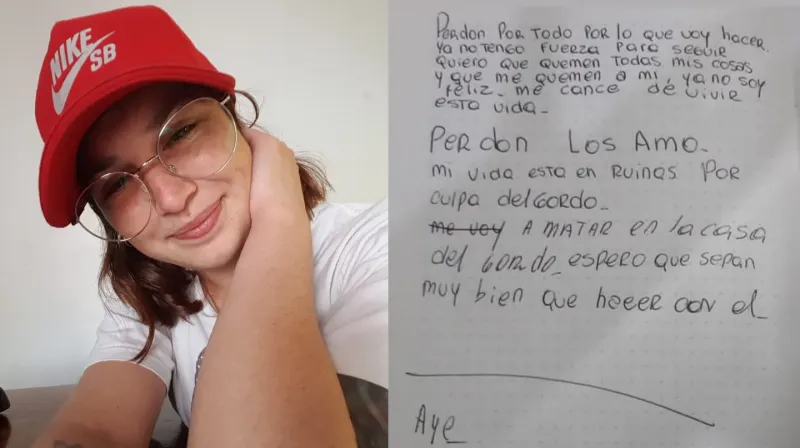 NIKE
SB
Perdon Por Todo Por lo que voy hacer.
Ya no Tengo fuerza Para Seguir
Quiero que quemen Todas mis cosas
y que me quemen a mi, ya no soy
feliz. me cance de vivir
esta vida.
Perdon Los Amo.
mi vida esta en Ruinas Por
culpa del GORDO.
me voy A MATAR en la casa
del GORDO. espero que sepan
muy bien que hacer con el
Aye